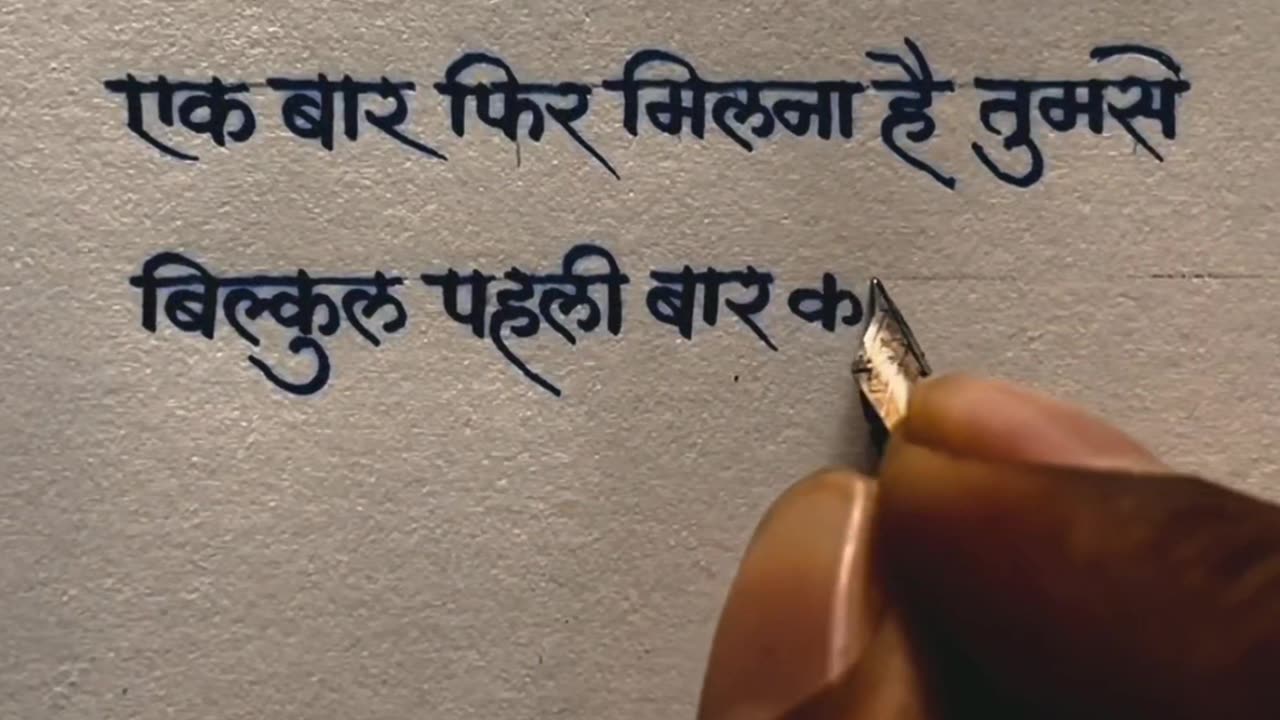 एक बार फिर मिलना है तुमसे
बिल्कुल पहली बार क